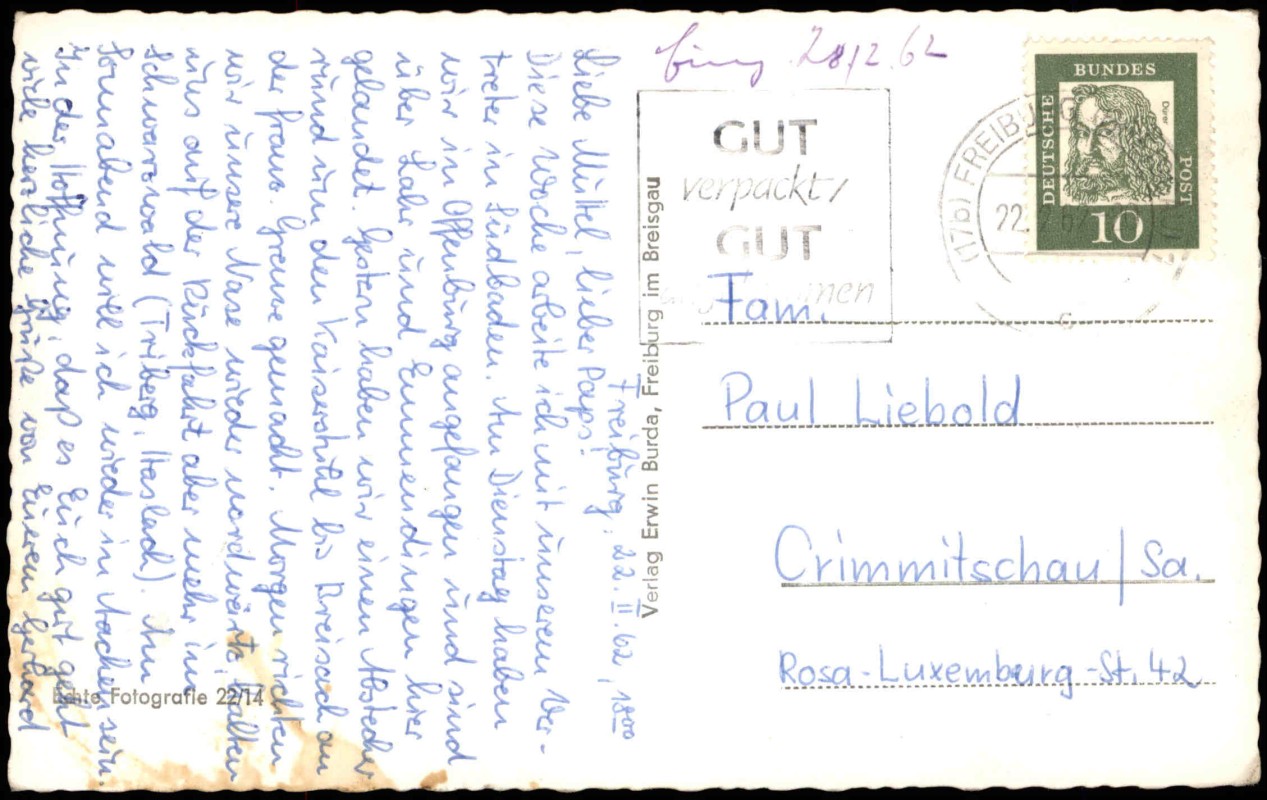 Freiburg, 22.II.62, 18⁰⁰
Liebe Muttel, lieber Paps!
Diese Woche arbeite ich mit unserem Ver-
treter in Südbaden. Am Dienstag haben
wir in Offenburg angefangen und sind
über Lahr und Emmendingen hier
gelandet. Gestern haben wir einen Abstecher
rund um den Kaiserstuhl bis Breisach an
der franz. Grenze gemacht. Morgen richten
wir unsere Nase wieder nordwärts, halten
uns auf der Rückfahrt aber mehr im
Schwarzwald (Triberg, Haslach). Am
Sonnabend will ich wieder in Aachen sein.
In der Hoffnung, daß es Euch gut geht
viele herzliche Grüße von Euerem Gerhard
Echte Fotografie 22/14
Verlag Erwin Burda, Freiburg im Breisgau
28/2.62
GUT
verpackt/
GUT
men
(17b) FREIBURG
22.
c
DEUTSCHE
BUNDES
POST
Dürer
10
Fam.
Paul Liebold
Crimmitschau/Sa.
Rosa-Luxemburg-St. 42